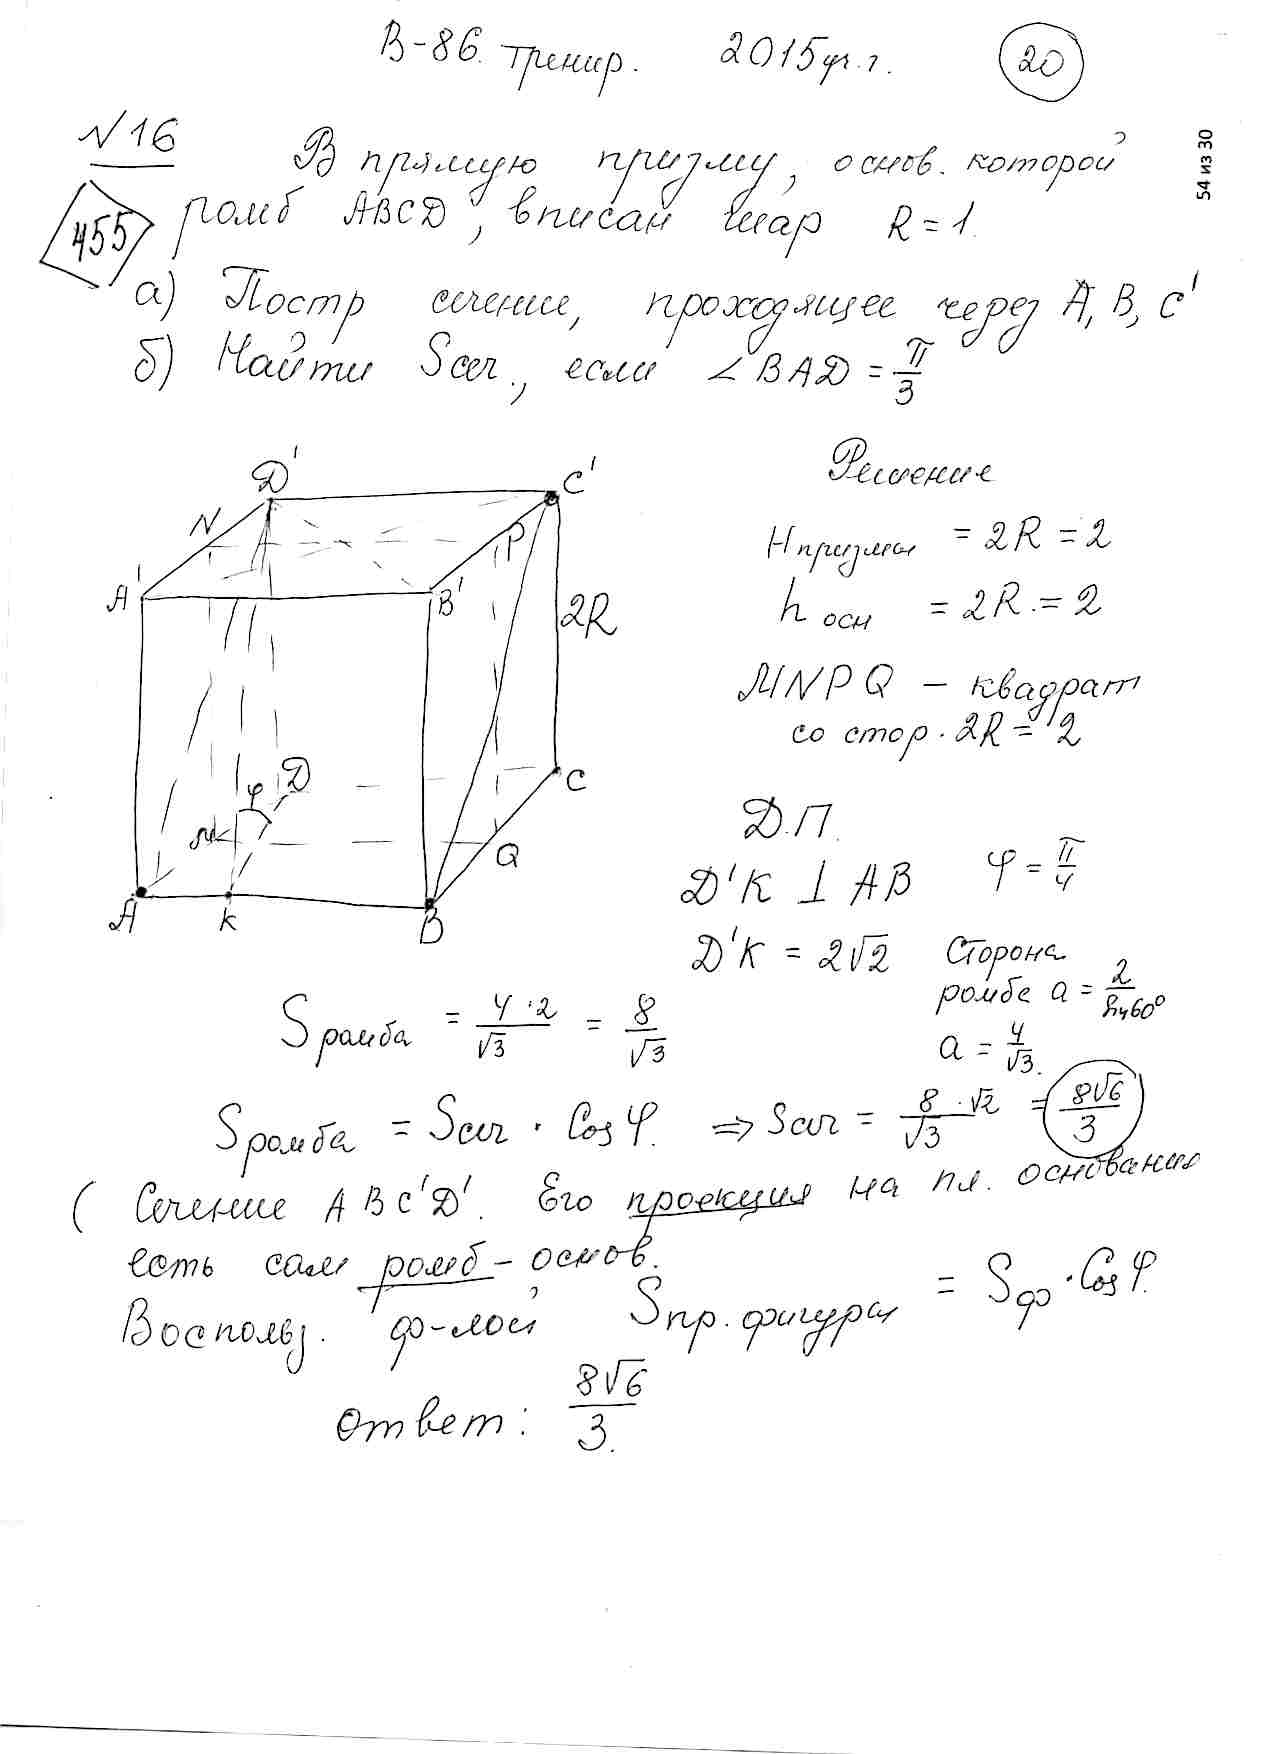 В-86. тренир. 2015 уч. г. 20
54 из 30
№16 В прямую призму, основ. которой
455 ромб ABCD, вписан шар R = 1.
а) Постр сечение, проходящее через A, B, C'
б) Найти Sсеч., если ∠BAD = π/3
Решение
H призмы = 2R = 2
h осн = 2R = 2
MNPQ – квадрат
со стор. 2R = 2
Д.П.
D'K ⊥ AB φ = π/4
D'K = 2√2 Сторона
ромба a = 2/Sin60°
a = 4/√3.
D' C'
N P
A' B' 2R
φ D C
M Q
A K B
Sромба = 4·2/√3 = 8/√3
Sромба = Sсеч · Cosφ. ⇒ Sсеч = 8·√2/√3 = 8√6/3
( Сечение ABC'D'. Его проекция на пл. основания
есть сам ромб – основ.
Воспольз. ф-лой Sпр. фигуры = Sф · Cosφ.
Ответ: 8√6/3.